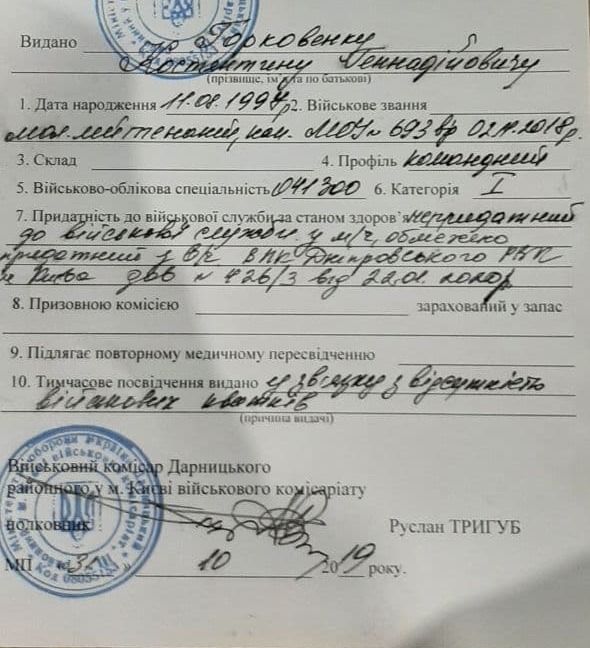 Видано Горковенку
Костянтину Геннадійовичу
(прізвище, ім'я та по батькові)
1. Дата народження 11.08.1994р 2. Військове звання
мол. лейтенант, нак. МОУ № 693 від 02.11.2018р.
3. Склад 4. Профіль командний
5. Військово-облікова спеціальність 041300 6. Категорія I
7. Придатність до військової служби за станом здоров'я непридатний
до військової служби у м/ч, обмежено
придатний у в/ч ВЛК Дніпровського РВК
м Києва № 426/3 від 22.01.
8. Призовною комісією зарахований у запас
9. Підлягає повторному медичному пересвідченню
10. Тимчасове посвідчення видано у зв'язку з відсутністю
військових квитків
(причина видачі)
Військовий комісар Дарницького
районного у м. Києві військового комісаріату
полковник Руслан ТРИГУБ
МП «31» 10 2019 року.